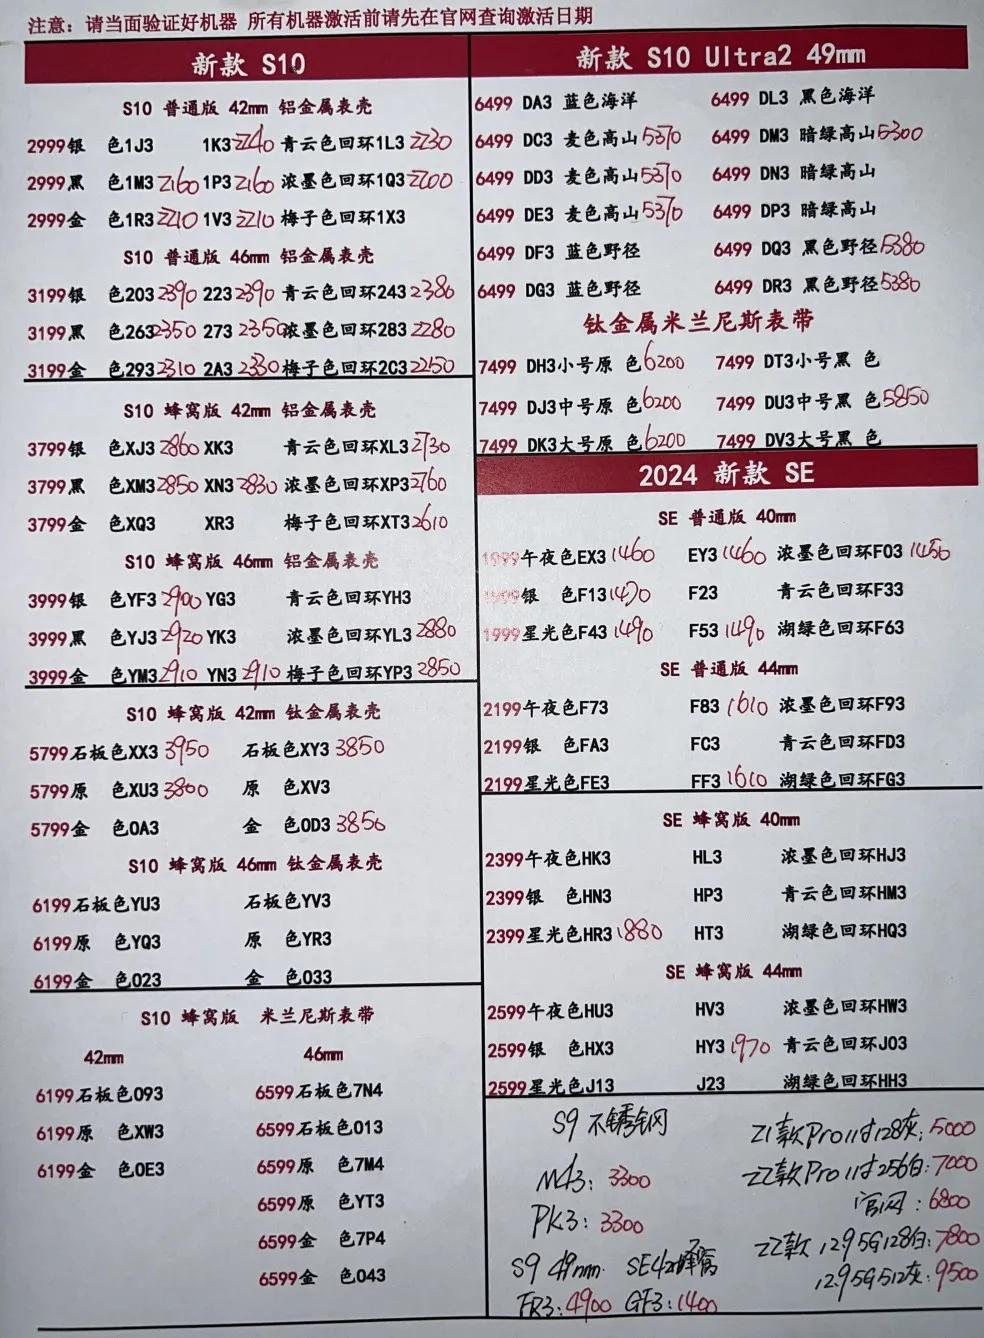 注意：请当面验证好机器 所有机器激活前请先在官网查询激活日期
新款 S10
S10 普通版 42mm 铝金属表壳
2999银 色1J3 1K3 2240 青云色回环1L3 2230
2999黑 色1M3 2160 1P3 2160 浓墨色回环1Q3 2200
2999金 色1R3 2210 1V3 2210 梅子色回环1X3
S10 普通版 46mm 铝金属表壳
3199银 色203 2390 223 2390 青云色回环243 2380
3199黑 色263 2350 273 2350 浓墨色回环283 2280
3199金 色293 2310 2A3 2330 梅子色回环2C3 2250
S10 蜂窝版 42mm 铝金属表壳
3799银 色XJ3 2860 XK3 青云色回环XL3 2730
3799黑 色XM3 2850 XN3 2830 浓墨色回环XP3 2760
3799金 色XQ3 XR3 梅子色回环XT3 2610
S10 蜂窝版 46mm 铝金属表壳
3999银 色YF3 2900 YG3 青云色回环YH3
3999黑 色YJ3 2920 YK3 浓墨色回环YL3 2880
3999金 色YM3 2910 YN3 2910 梅子色回环YP3 2850
S10 蜂窝版 42mm 钛金属表壳
5799石板色XX3 3950 石板色XY3 3850
5799原 色XU3 3800 原 色XV3
5799金 色0A3 金 色0D3 3850
S10 蜂窝版 46mm 钛金属表壳
6199石板色YU3 石板色YV3
6199原 色YQ3 原 色YR3
6199金 色023 金 色033
S10 蜂窝版 米兰尼斯表带
42mm 46mm
6199石板色093 6599石板色7N4
6199原 色XW3 6599石板色013
6199金 色0E3 6599原 色7M4
6599原 色YT3
6599金 色7P4
6599金 色043
新款 S10 Ultra2 49mm
6499 DA3 蓝色海洋 6499 DL3 黑色海洋
6499 DC3 麦色高山 5370 6499 DM3 暗绿高山 5300
6499 DD3 麦色高山 5370 6499 DN3 暗绿高山
6499 DE3 麦色高山 5370 6499 DP3 暗绿高山
6499 DF3 蓝色野径 6499 DQ3 黑色野径 5380
6499 DG3 蓝色野径 6499 DR3 黑色野径 5380
钛金属米兰尼斯表带
7499 DH3小号原 色 6200 7499 DT3小号黑 色
7499 DJ3中号原 色 6200 7499 DU3中号黑 色 5850
7499 DK3大号原 色 6200 7499 DV3大号黑 色
2024 新款 SE
SE 普通版 40mm
1999午夜色EX3 1460 EY3 1460 浓墨色回环F03 1450
银 色F13 1470 F23 青云色回环F33
1999星光色F43 1490 F53 1490 湖绿色回环F63
SE 普通版 44mm
2199午夜色F73 F83 1610 浓墨色回环F93
2199银 色FA3 FC3 青云色回环FD3
2199星光色FE3 FF3 1610 湖绿色回环FG3
SE 蜂窝版 40mm
2399午夜色HK3 HL3 浓墨色回环HJ3
2399银 色HN3 HP3 青云色回环HM3
2399星光色HR3 1880 HT3 湖绿色回环HQ3
SE 蜂窝版 44mm
2599午夜色HU3 HV3 浓墨色回环HW3
2599银 色HX3 HY3 1970 青云色回环J03
2599星光色J13 J23 湖绿色回环HH3
S9 不锈钢
3300
PK3: 3300
S9 49mm SE 蜂窝
FR3: 4900 GF3: 1400
21款Pro11寸128灰: 5000
22款Pro11寸256白: 7000
官网: 6800
22款 12.9 5G128白: 7800
12.9 5G512灰: 9500